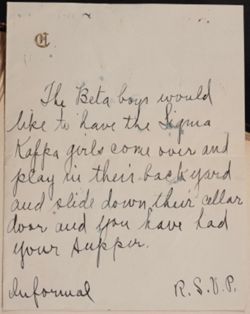 The Beta boys would
like to have the Sigma
Kappa girls come over and
play in their back yard
and slide down their cellar
door and you have had
your supper.
Informal R.S.V.P.